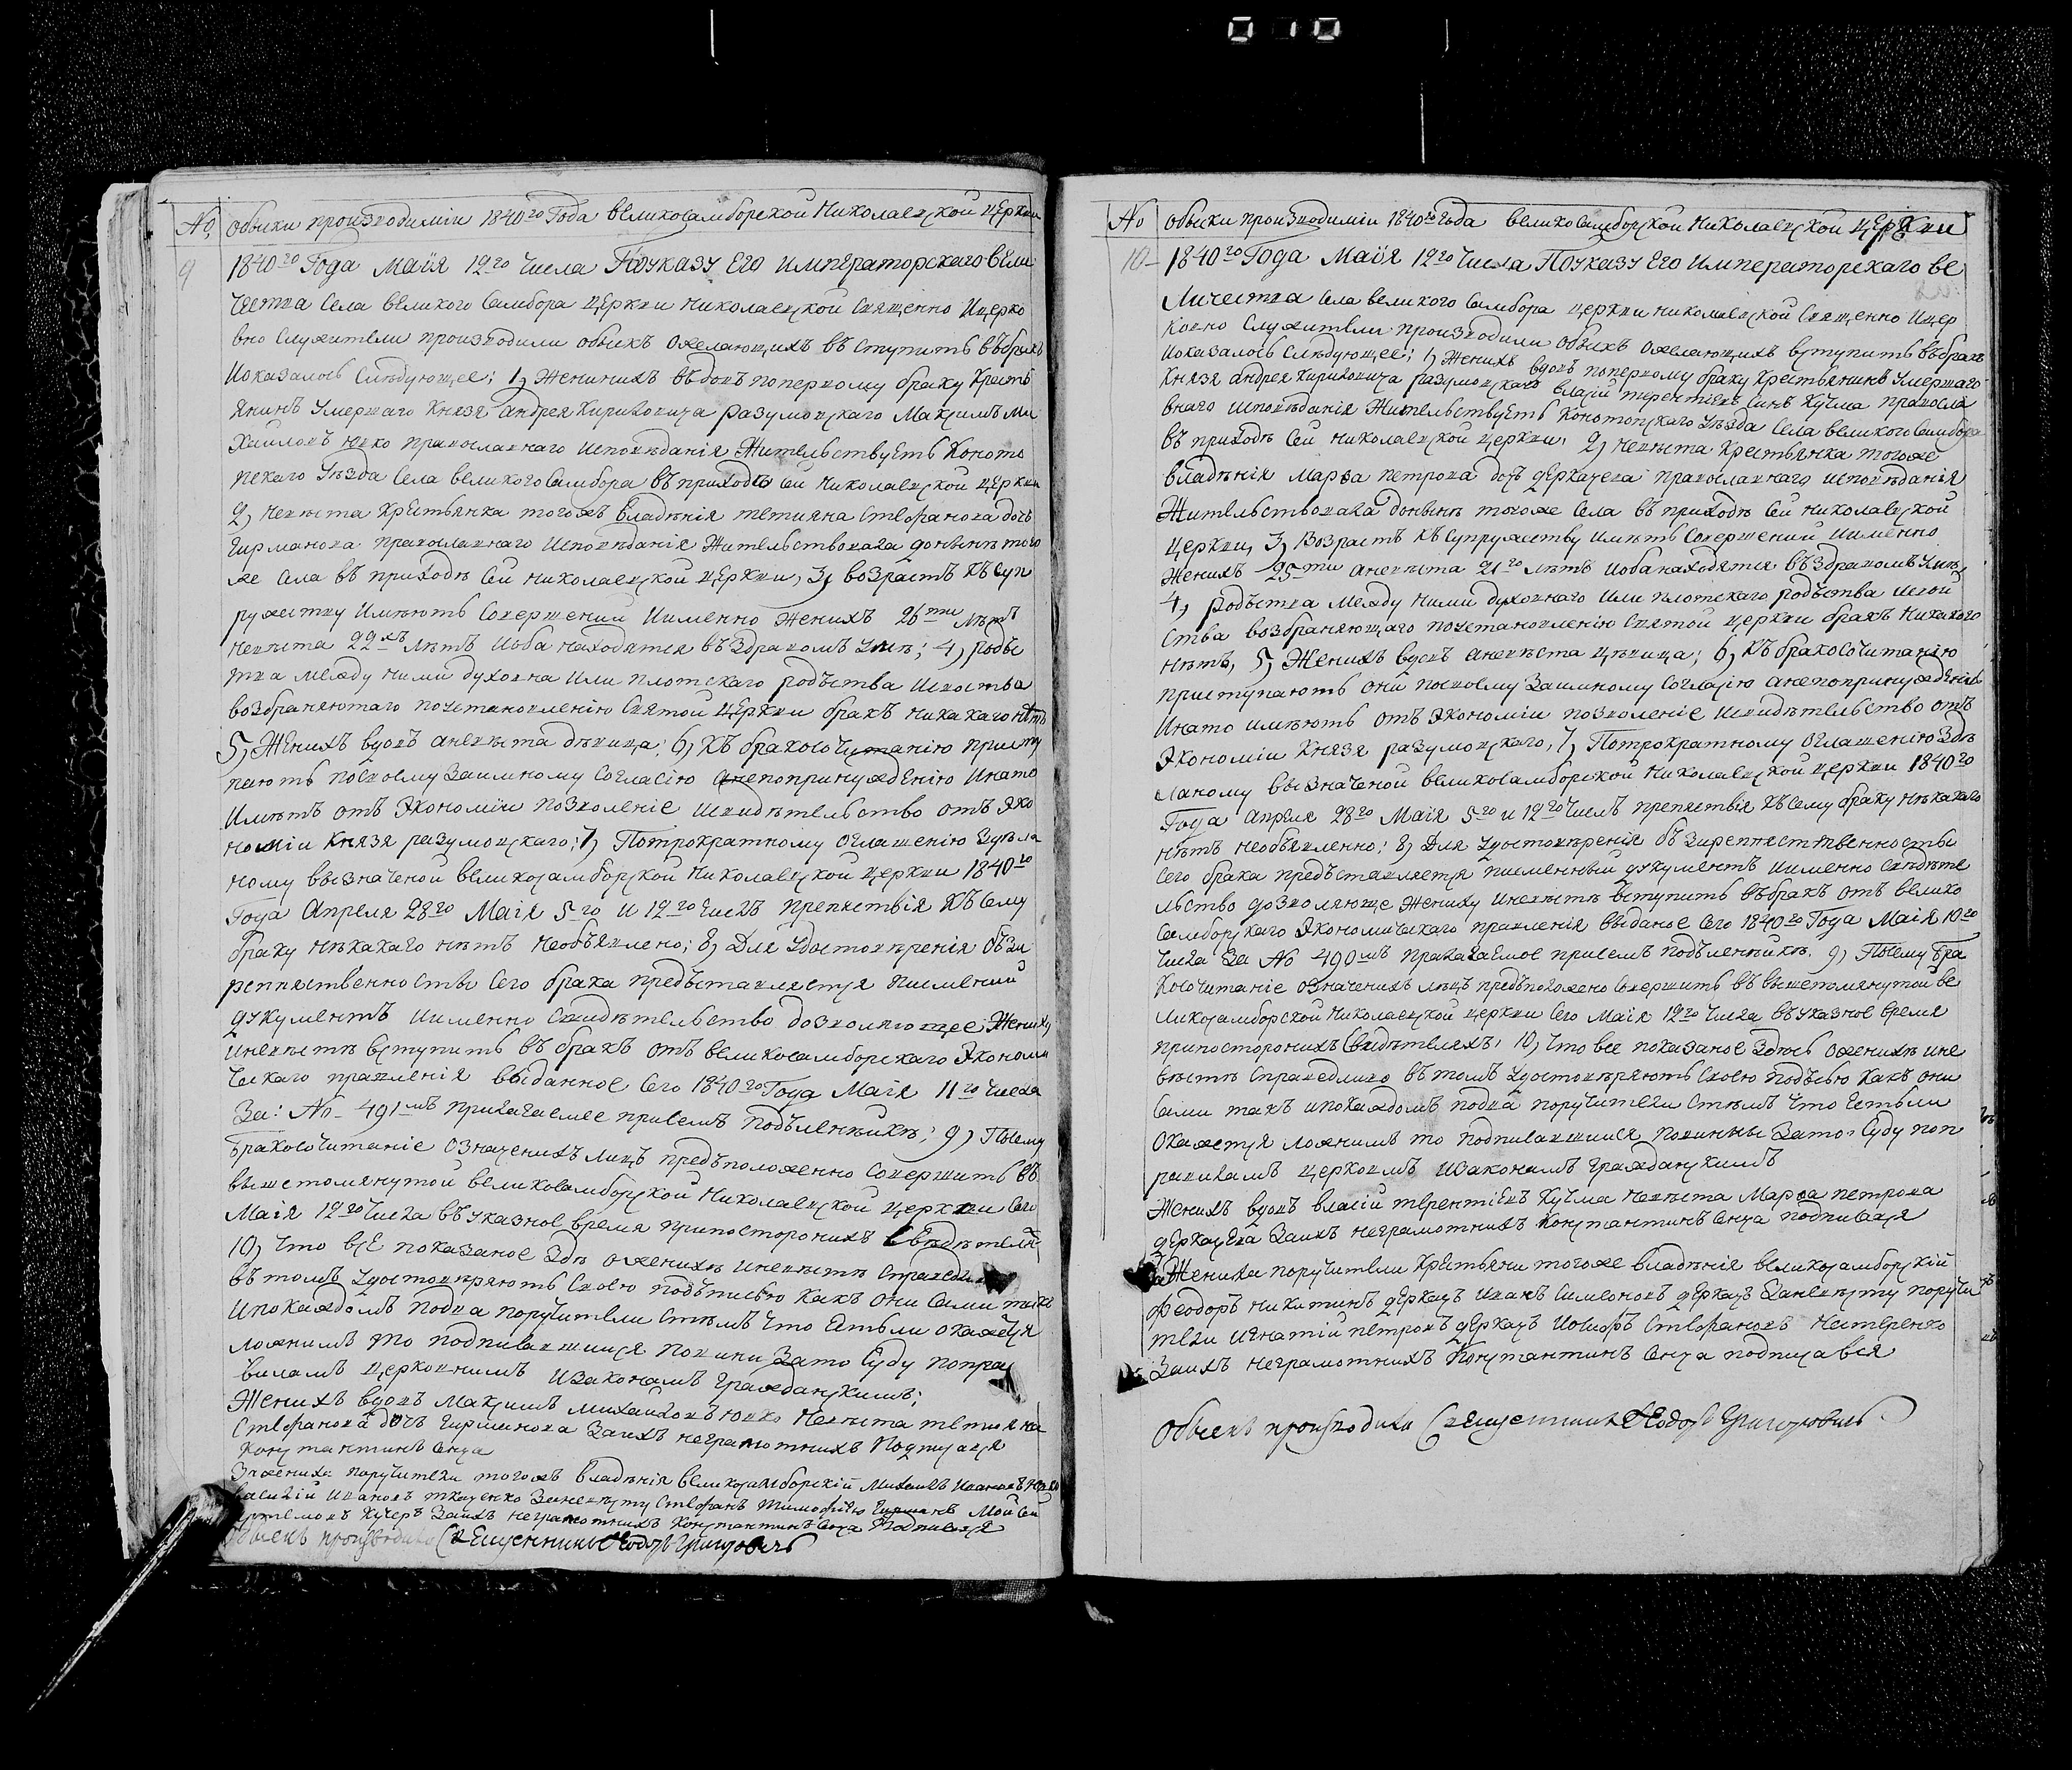 010
№ обыски произходиміи 1840го Года великосамборской Николаевской церкви
9 1840го Года Маія 12го Числа По указу Его Императорскаго вели
чества Села великого Самбора церкви Николаевской Священно Ицерко
вно Служители произходили обыскъ ожелающихъ въступить въбракъ
Иоказалось Слѣдующее; 1, Женихъ вдовъ поперкому браку Кресть
янинъ Умершаго Князя андрея Кириловича Разумовскаго Максимъ Ми
хаиловъ Юнко православнаго Исповѣданія Жительствуетъ Коното
пскаго Уѣзда Села великого Самбора въ приходѣ Сей Николаевской церкви
2, Невѣста Крестьянка тогожъ владѣнія тетияна Стефанова дочь
Гирманова православнаго Исповѣданія Жительствовала донынѣ того
же Села въ приходѣ Сей николаевской церкви, 3, возрастъ къ Суп
ружеству Имѣютъ Совершений Иименно Женихъ 26ти лѣтъ
невѣста 22хъ лѣтъ Иоба находятся въ Здравомъ Умѣ; 4, родъс
тва между ними духовна или плотскаго родъства Исвоства
возбраняютаго поустановленію Святой церкви бракъ никакаго нѣтъ
5, Женихъ вдовъ аневѣста дѣвица; 6, Къ бракосочитанію присту
паютъ посвоему Заимному Согласію анепопринужденію Инато
Имѣютъ отъ Экономіи позволеніе Исвидѣтельство отъ Эко
номіи Князя разумовскаго; 7, Потрократному оглашенію Здѣла
ному выозначеной великосамборской Николаевской церкви 1840го
Года Апреля 28го Маія 5го и 12го Числъ препятствія къ Сему
браку нѣкакаго нѣтъ необъявлено; 8, Для Удостовѣренія безъи
репятственносты Сего брака предъставляется писмений
дукументъ Иименно Свидѣтельство дозволяющее Жениху
Иневѣстѣ вступить въ бракъ отъ великосамборскаго Экономи
ческаго правленія выданное Сего 1840го Года Маія 11го Числа
За: № 491мъ прилагаемее присемъ подъленѣикѣ; 9, Посему
бракосочитаніе означенихъ лицъ предъположенно Совершить въ
вышетомянутой великосамборской Николаевской церкви Сего
Маія 12го Числа въ указное время припосторонихъ Свѣдѣтеляхъ
10, Что всЕ показаное Здѣ оженихѣ иневѣстѣ Справедли
въ томъ Удостовѣряютъ Своею подъписью какъ они Сами такъ
ипокаждомъ подва поручители Стѣмъ Что Естьли окажется
ложнимъ то подписавшиися повини Зато Суду попра
виламъ церковнимъ Изаконамъ Гражданскимъ;
Женихъ вдовъ Максимъ Михаиловъ Юнко Невѣста тетияна
Стефанова дочъ Гирманова Заихъ неграмотнихъ Подписался
Константинъ Сенча
Зажениха поручители тогожъ владѣнія великосамборскій Михаилъ Ивановъ Юнко
василій Ивановъ ткаченко Заневѣсту Стефанъ Тимофѣевъ Гирманъ Мойсей
Артемовъ Кучеръ Заихъ неграмотнихъ Константинъ Сенча Подписался
обыскъ производилъ Священникъ Ѳеодоръ Григоровичъ
№ обыски произходиміи 1840го Года великосамборской Николаевской церкви
10 1840го Года Маія 12го Числа По указу Его Императорскаго ве
личества Села великого Самбора церкви николаевской Священно Ицер
ковно Служители произходили обыскъ ожелающихъ вступить въбракъ
Иоказалось Слѣдующее; 1, Женихъ вдовъ поперкому браку Крестьянинъ Умершаго
Князя андрея Кириловича разумовскаго власій терентіевъ Синъ Кучма правосла
внаго Исповѣданія Жительствуетъ Конотопскаго Уѣзда Села великого Самбора
въ приходѣ Сей николаевской церкви, 2, невѣста Крестьянка тогоже
владѣнія Марѳа петрова дочъ деркачева православнаго исповѣданья
Жительствовала донынѣ тогоже Села въ приходѣ Сей николаевской
церкви, 3, Возрастъ къ Супружеству имѣютъ Совершений Иименно
Женихъ 25ти аневѣста 21го лѣтъ Иоба находятся въ Здравомъ Умѣ,
4, родъства между ними духовнаго или плотскаго родъства исвой
ства возбраняющаго поустановленію Святой церкви бракъ никакого
нѣтъ, 5, Женихъ вдовъ аневѣста дѣвица; 6, Къ бракосочитанію
приступаютъ они посвоему Заимному Согласію анепопринужденію
Инато имѣютъ отъ Экономіи позволеніе исвидѣтельство отъ
Экономіи Князя разумовскаго, 7, Потрократному оглашенію Здѣ
ланому выозначеной великосамборской Николаевской церкви 1840го
Года Апреля 28го Маія 5го и 12го Числъ препятствія къ Сему браку нѣкакаго
нѣтъ необъявленно; 8, Для Удостовѣренія безирепятственносты
Сего брака предъставляется писменный дукументъ Иименно Свѣдѣте
льство дозволяюще Жениху иневѣстѣ вступить въбракъ отъ велико
Самборскаго Экономическаго правленія выданое Сего 1840го Года Маія 10го
Числа За № 490мъ прилагаемое присемъ подъленѣикѣ, 9, Посему бра
косочитаніе означенихъ лицъ предъположено Совершить въ вышетомянутой ве
ликосамборской Николаевской церкви Сего Маія 12го Числа въ указное время
припосторонихъ Свидѣтеляхъ, 10, Что все показаное Здѣсь оженихѣ ине
вѣстѣ Справедливо въ томъ Удостовѣряютъ Своею подъсью какъ они
Сами такъ ипокаждомъ подва поручители Стѣмъ Что Естьли
окажется ложнимъ то подписавшиися повинны Зато Суду поп
равиламъ церковимъ Изаконамъ Гражданскимъ
Женихъ вдовъ власій терентіевъ Кучма невѣста Марѳа петрова
деркачева Заихъ неграмотнихъ Константинъ Сенча подписался
За Жениха поручители Крестьяни тогоже владѣнія великосамборскій
Феодоръ никитинъ деркачъ иванъ Симеоновъ деркачъ Заневѣсту поручи
тели игнатій петровъ деркачъ Иосифъ Стефановъ Нестеренко
Заихъ неграмотнихъ Константинъ Сенча подписався
Обыскъ произходилъ Священникъ Ѳеодоръ Григоровичъ